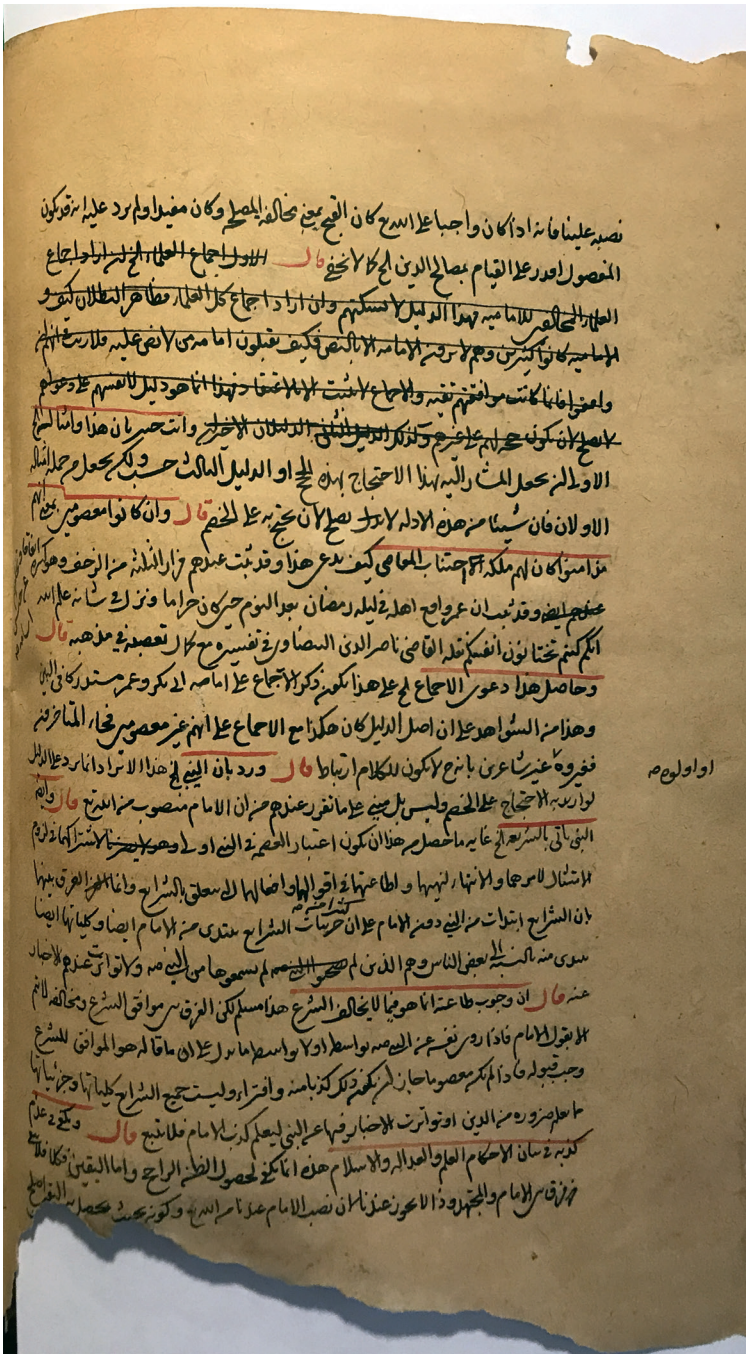 نصبه علينا فانه اذا كان واجبا على الله تع كان القبح بمعنى مخالفه المصلحه وكان مفيدا ولم يرد عليه انه قد يكون
المفضول اقدر على القيام بمصالح الدين الخ كما لا يخفى قال الاول اجماع العلماء الخ ان اراد اجماع
العلماء المخالفين للاماميه فهذا الدليل لا يسكتهم وان اراد اجماع كل العلماء فظاهر البطلان كيف و
الاماميه كانوا كثيرين وهم لا يرون الامامه الا بالنص فكيف يقبلون امامه من لا نص عليه فلا ريب انهم لم
وافقوا فانما كانت موافقتهم تقيه والاجماع لا يثبت الا بالاعتقاد فهذا انما هو دليل لانفسهم على دعواهم
لا يصلح لان يكون حجه لهم على غيرهم وكذلك الدليلان الاخران وانت خبير بان هذا وامثاله
الاولى ان يجعل المشار اليه بهذا الاحتجاج بهذه الخ او الدليل الثالث حسب ولكن يجعل من جمله امثاله
الاولان فان شيئا من هذه الادله لا يصلح لان يحتج به على الخصم قال وان كانوا معصومين بمعنى انهم
مذ امنوا كان لهم ملكه اجتناب المعاصي كيف يدعى هذا وقد ثبت عندهم فرار الثلثه من الزحف وهو كبيره
وقد ثبت ان عمر واقع اهله في ليله رمضان بعد النوم حين كان حراما ونزل في شانه علم الله
انكم كنتم تختانون انفسكم نقله القاضي ناصر الدين البيضاوي في تفسيره مع كمال تعصبه في مذهبه قال
وحاصل هذا دعوى الاجماع الخ على هذا يكون ذكر الاجماع على امامه ابي بكر وعمر مستدركا في البين
وهذا من الشواهد على ان اصل الدليل كان هكذا مع الاجماع على انهم غير معصومين فجاء المتاخرون
فغيروه غير شاعرين بانه ح لا يكون للكلام ارتباط قال ورد بان النبي الخ هذا الايراد انما يرد على الدليل
او اولوه صه
لو اريد به الاحتجاج على الخصم وليس بل مبني على ما تقرر عندهم من ان الامام منصوب من الله تع قال وايضا
النبي ياتي بالشريعه الخ غايه ما حصل من هذا ان يكون اعتبار العصمه في النبي اولى لاشتراكهما في لزوم
الامتثال لامرهما والانتهاء لنهيهما واطاعتهما في اقوالهما وافعالهما التي يتعلق بالشرايع وانما الفرق بينهما
بان الشرايع ابتدات من النبي دون الامام على ان جزييات الشرايع يبتدى من الامام ايضا وكلياتها ايضا
يبتدى منه بالنسبه الى بعض الناس وهم الذين لم يسمعوها من النبي صه ولا تواترت عندهم الاخبار
عنه قال ان وجوب طاعته انما هو فيما لا يخالف الشرع هذا مسلم لكن الفرق بين موافق الشرع ومخالفه لا يتم
الا بقول الامام فاذا روى نفسه عن النبي صه بواسطه او لا بواسطه ما يدل على ان ما قاله هو الموافق للشرع
وجب قبوله فاذا لم يكن معصوما جاز ان يكون ذلك كذبا منه وافتراء وليست جميع الشرايع كلياتها وجزئياتها
ما يعلم ضروره من الدين او تواترت الاخبار فيها عن النبي ليعلم كذب الامام فلا يتبع قال ويكفي في عدم
كذبه في بيان الاحكام العلم والعداله والاسلام هذه انما يكفي لحصول الظن الراجح واما اليقين فكلا
فرق بين الامام والمجتهد وذا لا يجوز عندنا لان نصب الامام عندنا من الله تع وكونه بحيث يحصل به